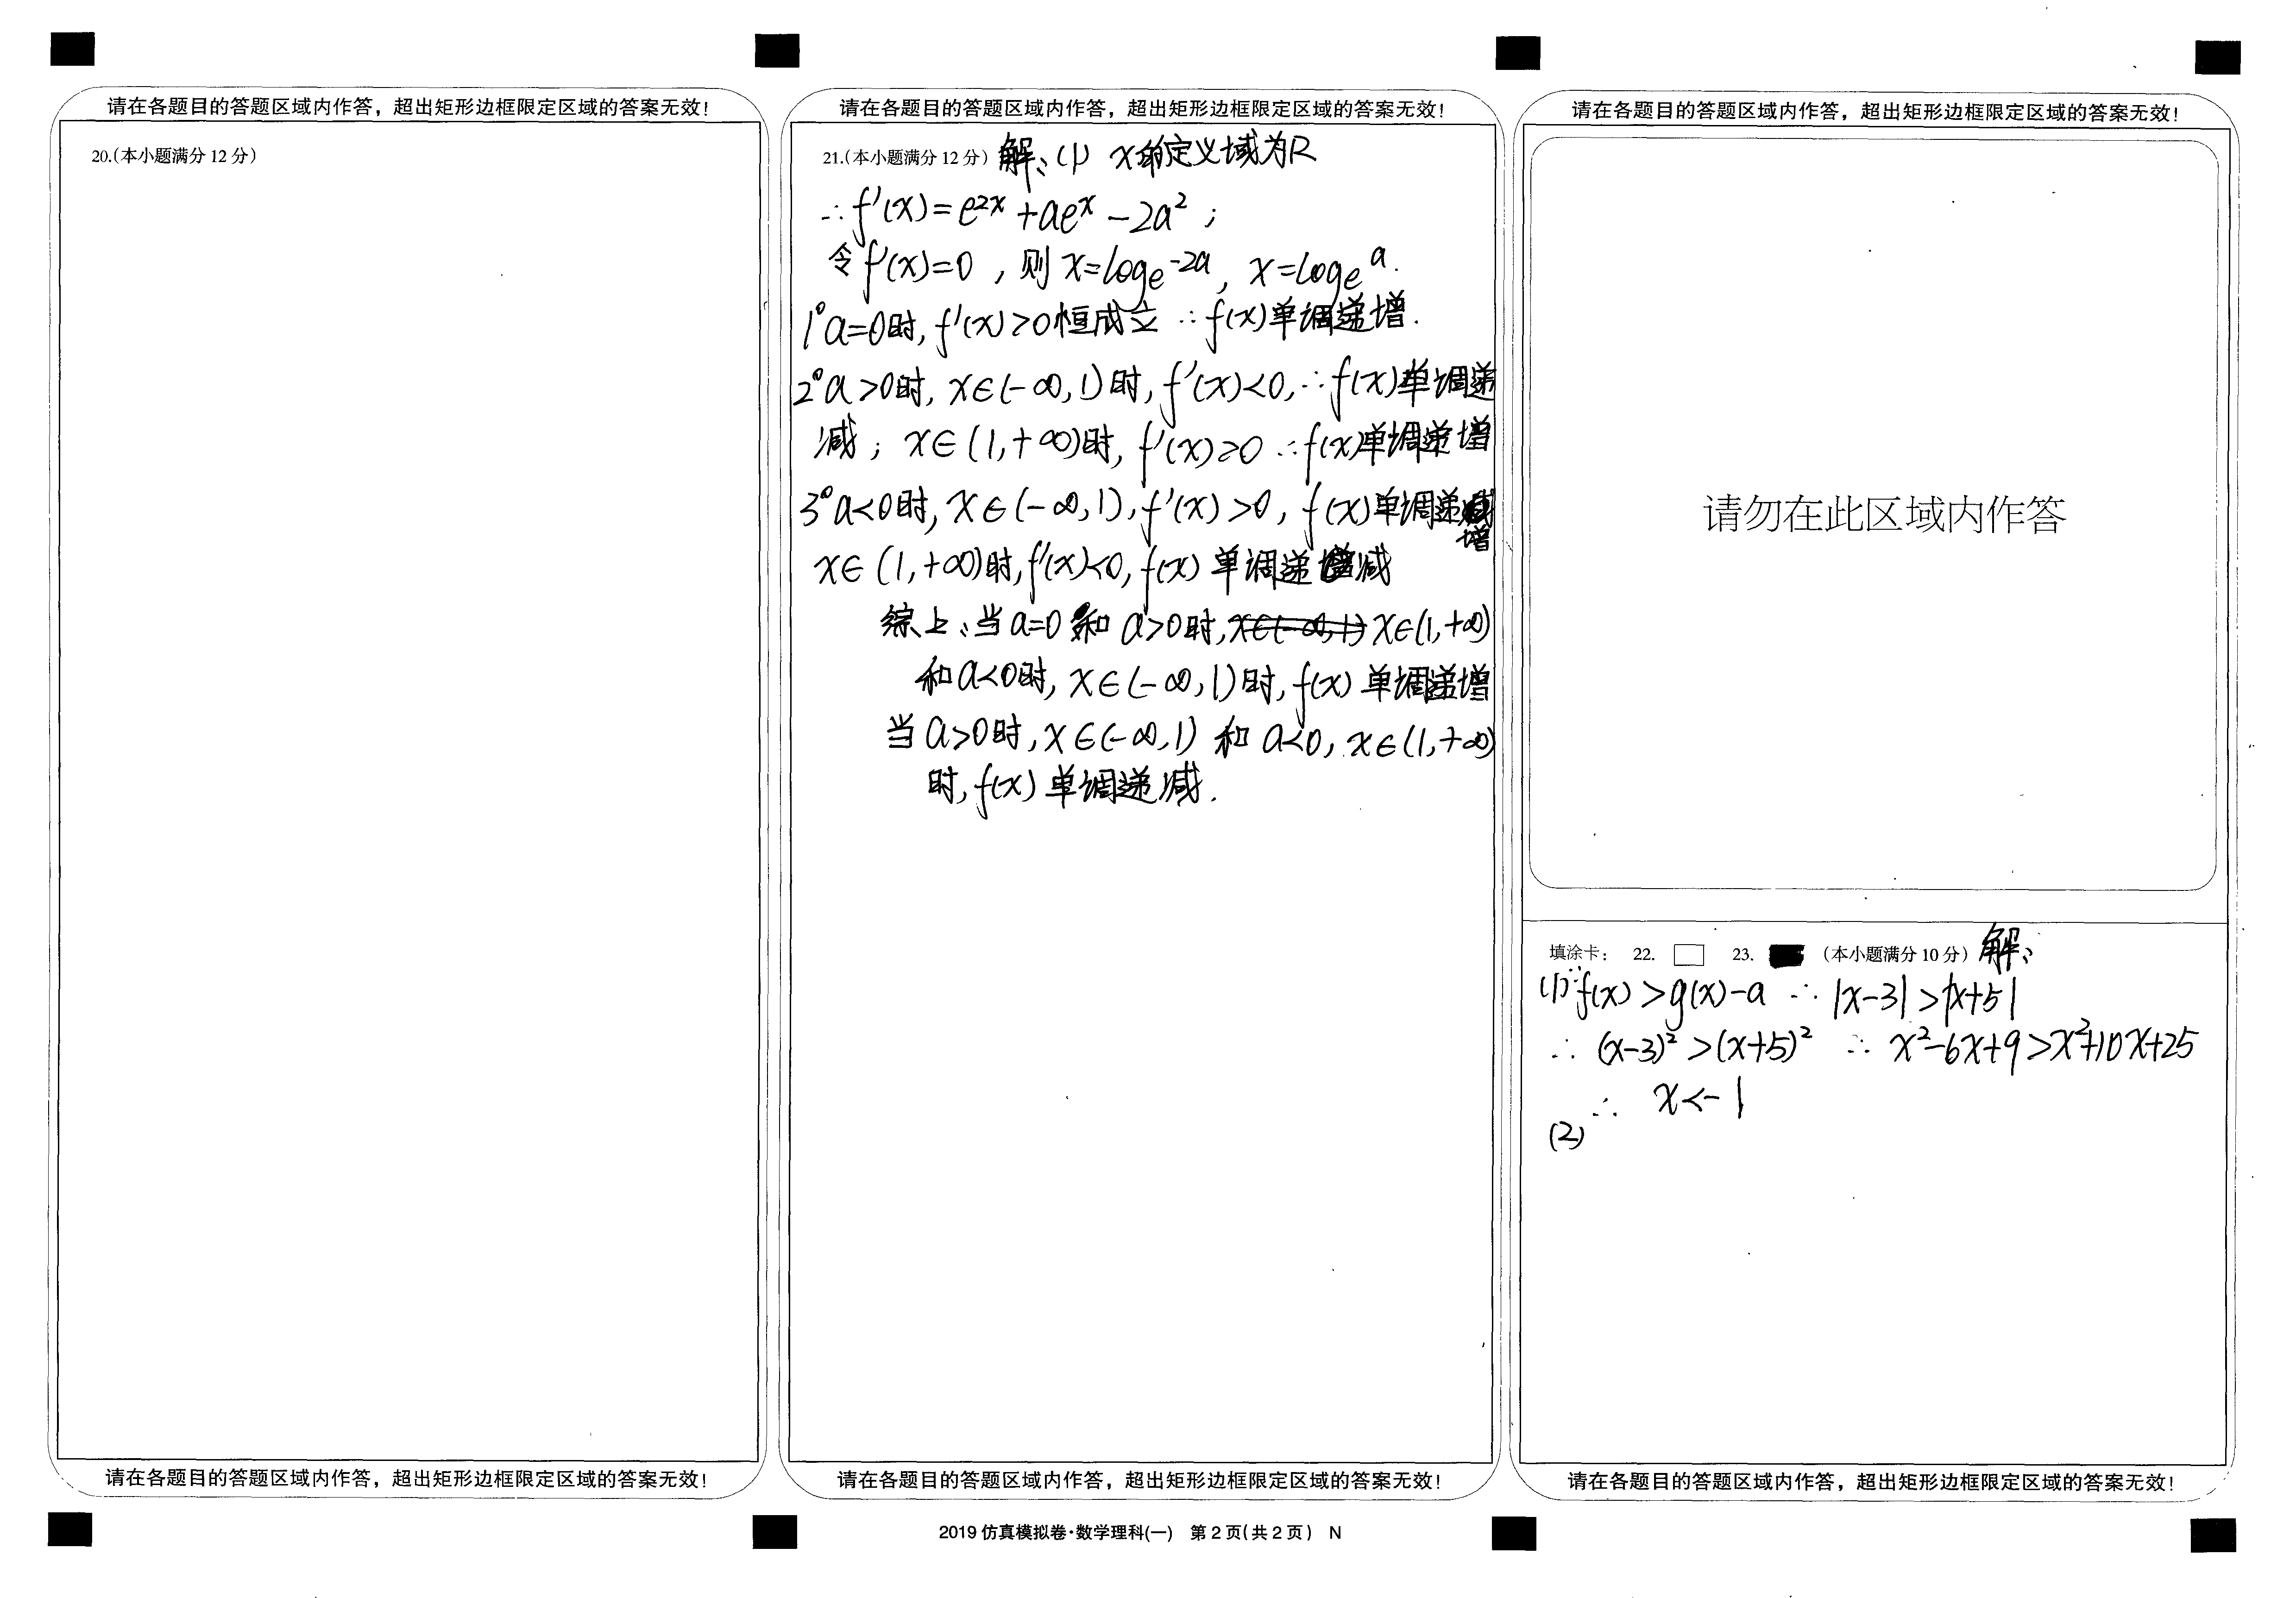 请在各题目的答题区域内作答，超出矩形边框限定区域的答案无效！
20.(本小题满分12分)
请在各题目的答题区域内作答，超出矩形边框限定区域的答案无效！
请在各题目的答题区域内作答，超出矩形边框限定区域的答案无效！
21.(本小题满分12分) 解、(1) x的定义域为R
∴f'(x)=e²ˣ+aeˣ-2a²；
令f'(x)=0，则x=logₑ-2a，x=logₑa.
1°a=0时，f'(x)>0恒成立∴f(x)单调递增.
2°a>0时，x∈(-∞,1)时，f'(x)<0，∴f(x)单调递
减；x∈(1,+∞)时，f'(x)≥0∴f(x)单调递增
3°a<0时，x∈(-∞,1)，f'(x)>0，f(x)单调递
增
x∈(1,+∞)时，f'(x)<0，f(x)单调递减
综上、当a=0和a>0时，x∈(-∞,1) x∈(1,+∞)
和a<0时，x∈(-∞,1)时，f(x)单调递增
当a>0时，x∈(-∞,1)和a<0，x∈(1,+∞)
时，f(x)单调递减.
请在各题目的答题区域内作答，超出矩形边框限定区域的答案无效！
2019仿真模拟卷·数学理科(一) 第2页(共2页) N
请在各题目的答题区域内作答，超出矩形边框限定区域的答案无效！
请勿在此区域内作答
填涂卡： 22. 23. (本小题满分10分) 解、
(1)∵f(x)>g(x)-a ∴|x-3|>|x+5|
∴(x-3)²>(x+5)² ∴x²-6x+9>x²+10x+25
∴ x<-1
(2)
请在各题目的答题区域内作答，超出矩形边框限定区域的答案无效！